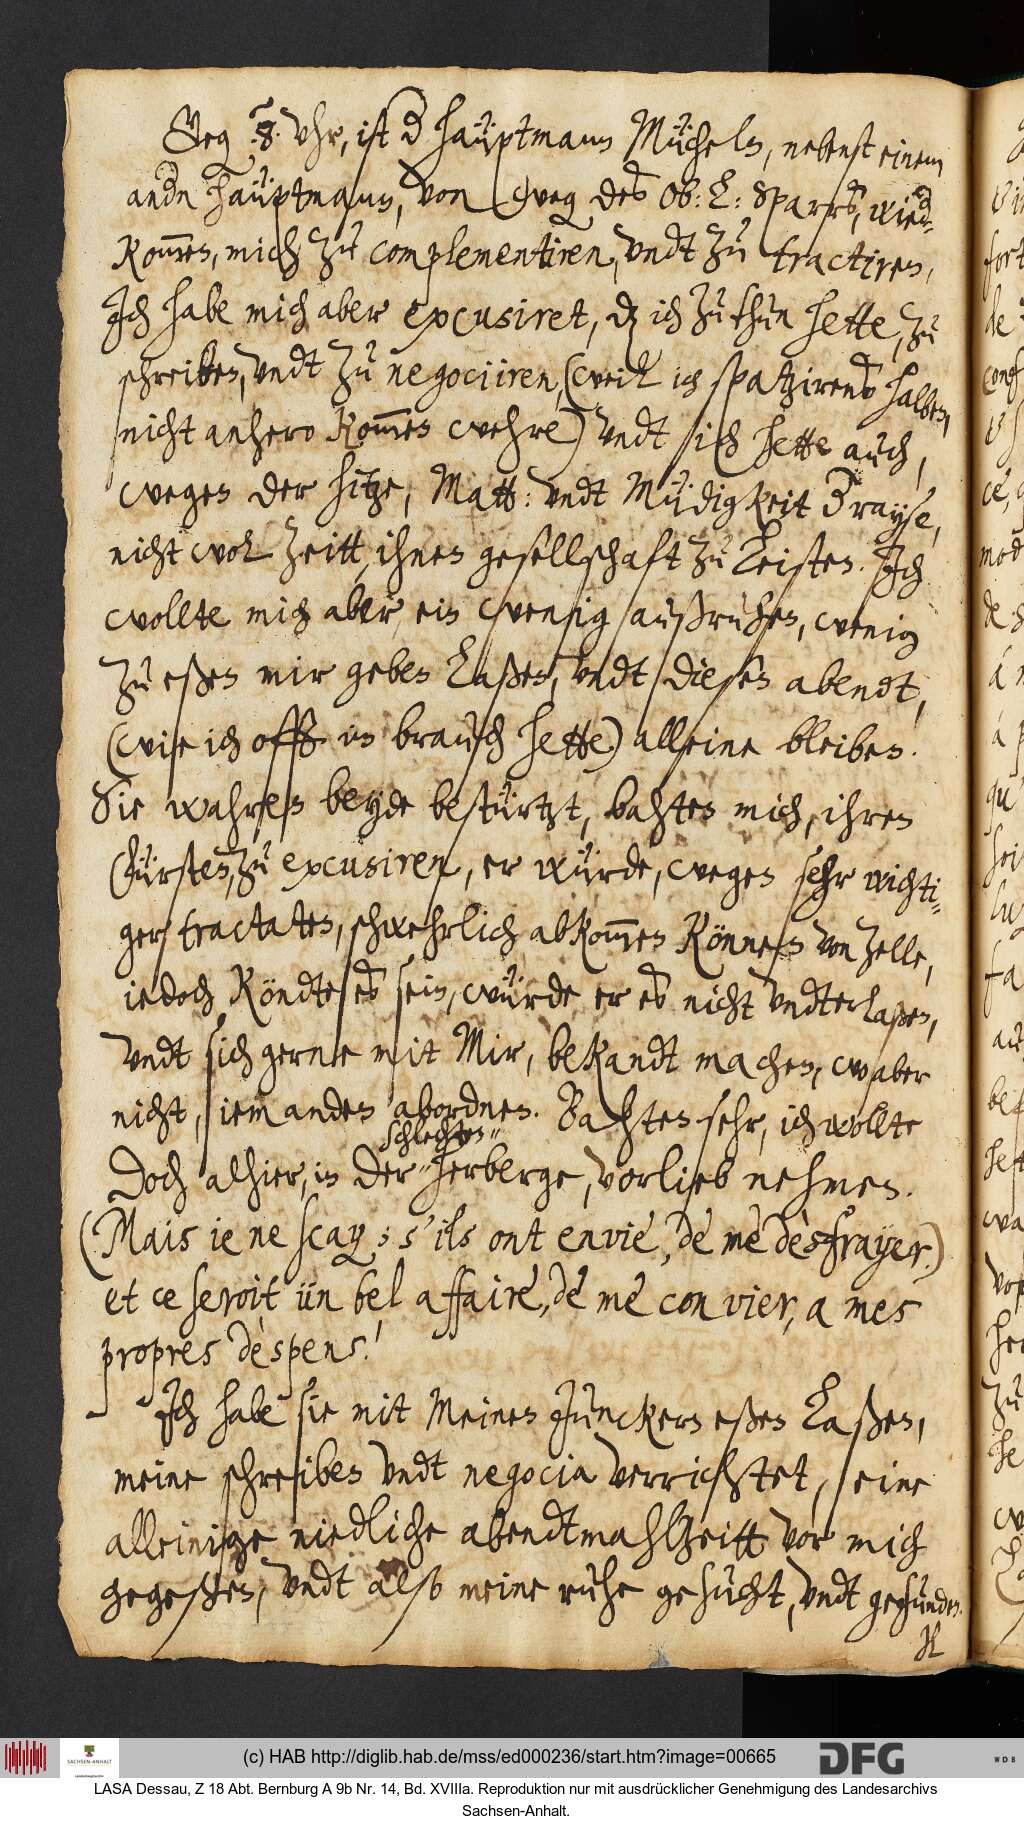 Geg. 8. Vhr, ist d hauptmann Müchels, nebenst einem
andn hauptmann, von weg des Ob: L: Sparrs, wied-
kommen, mich zu complementiren, vndt zu tractiren,
Jch habe mich aber excusiret, dz ich zu thun hette, zu
schreiben, vndt zu negociiren, (weil ich spatzirens halben,
nicht anhero kommen wehre) vndt ich hette auch,
wegen der hitze, Matt: vndt Müdigkeit d rayse,
nicht wol zeitt, ihnen gesellschaft zu leisten. Jch
wollte mich aber, ein wenig außruhen, wenig
zu eßen mir geben laßen, vndt diesen abendt,
(wie ich offt im brauch hette) alleine bleiben.
Sie wahren beyde bestürtzt, bahten mich, ihren
Fürsten, zu excusiren, er würde, wegen sehr wichti-
ger tractaten, schwehrlich abkommen können von Zelle,
iedoch köndte es sein, würde er es nicht vndterlaßen,
vndt sich gerne mit Mir, bekandt machen, wo aber
nicht, iemanden abordnen. Bahten sehr, ich wollte
schlechten
doch alhier, in der herberge, vorlieb nehmen.
(Mais ie ne scay; s'ils ont envie, de me desfrayer.)
et ce seroit ün bel affaire, de me convier, a mes
propres despens!
Jch habe sie mit Meinen Junckern eßen laßen,
meine schreiben vndt negocia verrichtet, eine
alleinige niedliche abendtmahlzeitt vor mich
gegeßen, vndt also meine ruhe gesucht, vndt gefunden.
(c) HAB http://diglib.hab.de/mss/ed000236/start.htm?image=00665
SACHSEN-ANHALT
DFG
WDB
LASA Dessau, Z 18 Abt. Bernburg A 9b Nr. 14, Bd. XVIIIa. Reproduktion nur mit ausdrücklicher Genehmigung des Landesarchivs
Sachsen-Anhalt.